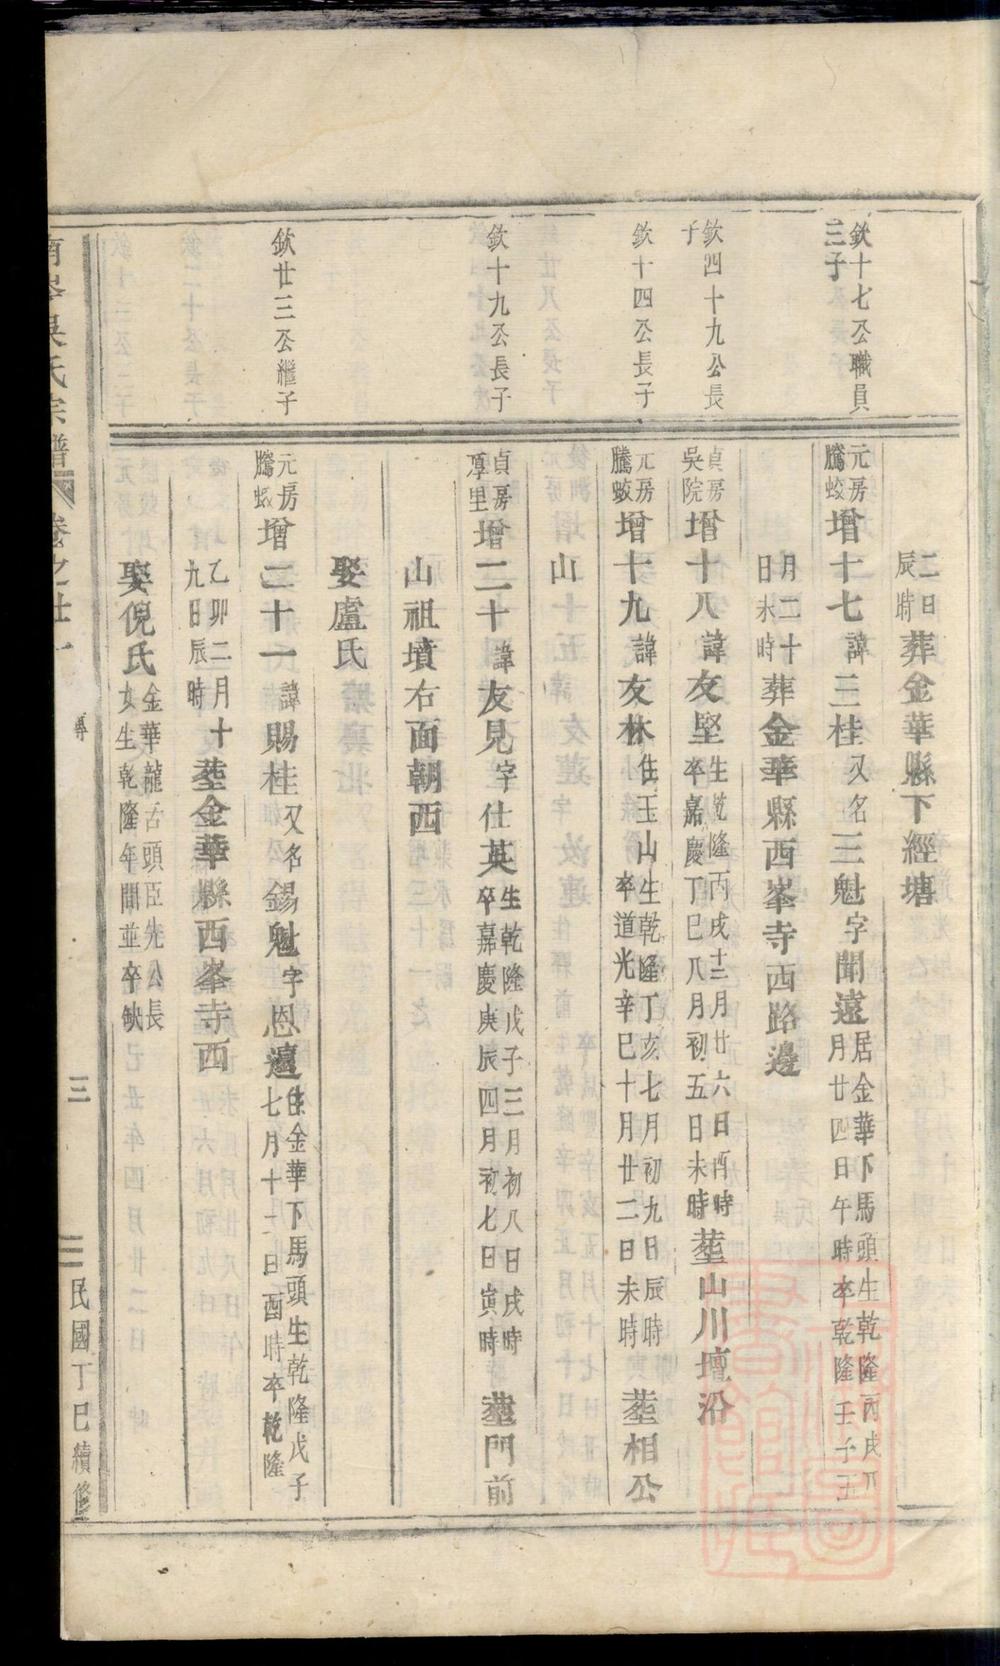 欽十七公職員
三子
欽四十九公長
子
欽十四公長子
欽十九公長子
欽廿三公繼子
二日
辰時
葬金華縣下經塘
元房
騰蛟
增十七諱三桂又名三魁字聞遠
居金華下馬頭生乾隆丙戌八
月廿四日午時卒乾隆壬子五
月二十
日未時
葬金華縣西峯寺西路邊
貞房
吳院
增十八諱友堅
生乾隆丙戌十二月廿六日酉時
卒嘉慶丁巳八月初五日未時
葬山川壇沿
元房
騰蛟
增十九諱友林住玉山
生乾隆丁亥七月初九日辰時
卒道光辛巳十月廿二日未時
葬相公
山
貞房
厚里
增二十諱友見字仕英
生乾隆戊子三月初八日戌時
卒嘉慶庚辰四月初七日寅時
葬門前
山祖墳右面朝西
娶盧氏
元房
騰蛟
增二十一諱賜桂又名錫魁字恩遠
住金華下馬頭生乾隆戊子
七月十一日酉時卒乾隆
乙卯二月十
九日辰時
葬金華縣西峯寺西
娶倪氏
金華龍舌頭臣先公長
女生乾隆年間並卒缺
吳氏宗譜
卷之廿一
三
民國丁巳續修